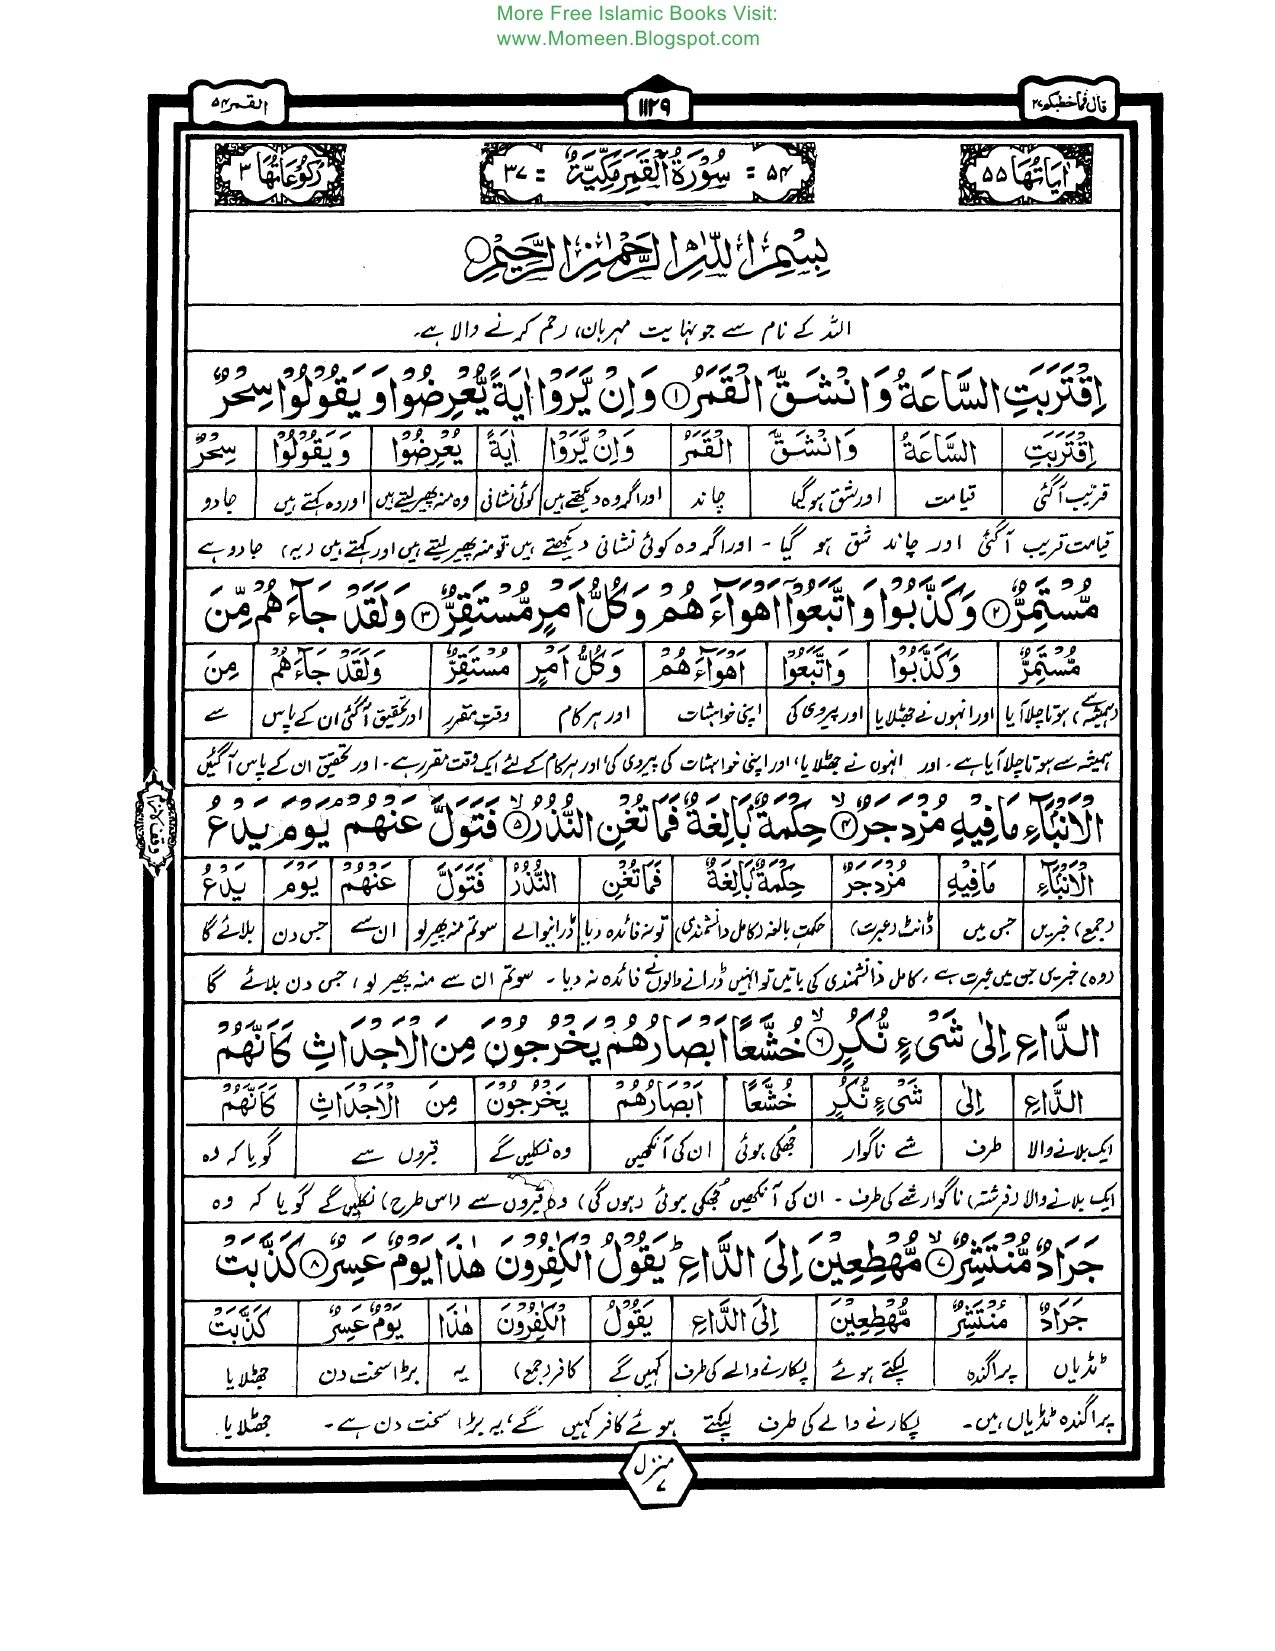 More Free Islamic Books Visit:
www.Momeen.Blogspot.com
قال فما خطبکم ۲۷ ۱۱۲۹ القمر ۵۴
اٰیَاتُهَا ۵۵ ۵۴ = سُوْرَةُ الْقَمَرِ مَكِّيَّةٌ = ۳۷ رُكُوْعَاتُهَا ۳
بِسْمِ اللّٰهِ الرَّحْمٰنِ الرَّحِيْمِ
اللہ کے نام سے جو نہایت مہربان، رحم کرنے والا ہے۔
اِقْتَرَبَتِ السَّاعَةُ وَانْشَقَّ الْقَمَرُ ۱ وَاِنْ يَّرَوْا اٰيَةً يُّعْرِضُوْا وَيَقُوْلُوْا سِحْرٌ
اِقْتَرَبَتِ السَّاعَةُ وَانْشَقَّ الْقَمَرُ وَاِنْ يَّرَوْا اٰيَةً يُعْرِضُوْا وَيَقُوْلُوْا سِحْرٌ
قریب آگئی قیامت اور شق ہوگیا چاند اور اگر وہ دیکھتے ہیں کوئی نشانی وہ منہ پھیر لیتے ہیں اور وہ کہتے ہیں جادو
قیامت قریب آگئی اور چاند شق ہو گیا ۔ اور اگر وہ کوئی نشانی دیکھتے ہیں تو منہ پھیر لیتے ہیں اور کہتے ہیں (یہ) جادو ہے
مُّسْتَمِرٌّ ۲ وَكَذَّبُوْا وَاتَّبَعُوْٓا اَهْوَآءَهُمْ وَكُلُّ اَمْرٍ مُّسْتَقِرٌّ ۳ وَلَقَدْ جَآءَهُمْ مِّنَ
مُّسْتَمِرٌّ وَكَذَّبُوْا وَاتَّبَعُوْا اَهْوَآءَهُمْ وَكُلُّ اَمْرٍ مُسْتَقِرٌّ وَلَقَدْ جَآءَهُمْ مِنَ
(ہمیشہ سے) ہوتا چلا آیا اور انہوں نے جھٹلایا اور پیروی کی اپنی خواہشات اور ہر کام وقتِ مقرر اور تحقیق آگئی ان کے پاس سے
ہمیشہ سے ہوتا چلا آیا ہے۔ اور انہوں نے جھٹلایا، اور اپنی خواہشات کی پیروی کی، اور ہر کام کے لئے ایک وقت مقرر ہے۔ اور تحقیق ان کے پاس آگئیں
الْاَنْۢبَآءِ مَا فِيْهِ مُزْدَجَرٌ ۴ حِكْمَةٌۢ بَالِغَةٌ فَمَا تُغْنِ النُّذُرُ ۵ فَتَوَلَّ عَنْهُمْ يَوْمَ يَدْعُ
الْاَنْۢبَآءِ مَا فِيْهِ مُزْدَجَرٌ حِكْمَةٌۢ بَالِغَةٌ فَمَا تُغْنِ النُّذُرُ فَتَوَلَّ عَنْهُمْ يَوْمَ يَدْعُ
(جمع) خبریں جس میں ڈانٹ (عبرت) حکمت بالغہ (کامل دانشمندی) تو نہ فائدہ دیا ڈرانیوالے سو تم منہ پھیر لو ان سے جس دن بلائے گا
(وہ) خبریں جن میں عبرت ہے، کامل دانشمندی کی باتیں تو انہیں ڈرانے والوں نے فائدہ نہ دیا ۔ سو تم ان سے منہ پھیر لو، جس دن بلائے گا
الدَّاعِ اِلٰى شَيْءٍ نُّكُرٍ ۶ خُشَّعًا اَبْصَارُهُمْ يَخْرُجُوْنَ مِنَ الْاَجْدَاثِ كَاَنَّهُمْ
الدَّاعِ اِلٰى شَيْءٍ نُّكُرٍ خُشَّعًا اَبْصَارُهُمْ يَخْرُجُوْنَ مِنَ الْاَجْدَاثِ كَاَنَّهُمْ
ایک بلانے والا طرف شے ناگوار جھکی ہوئی ان کی آنکھیں وہ نکلیں گے قبروں سے گویا کہ وہ
ایک بلانے والا (فرشتہ) ناگوار شے کی طرف ۔ ان کی آنکھیں جھکی ہوئی (ہوں گی) وہ قبروں سے (اس طرح) نکلیں گے گویا کہ وہ
جَرَادٌ مُّنْتَشِرٌ ۷ مُّهْطِعِيْنَ اِلَى الدَّاعِ ؕ يَقُوْلُ الْكٰفِرُوْنَ هٰذَا يَوْمٌ عَسِرٌ ۸ كَذَّبَتْ
جَرَادٌ مُنْتَشِرٌ مُّهْطِعِيْنَ اِلَى الدَّاعِ يَقُوْلُ الْكٰفِرُوْنَ هٰذَا يَوْمٌ عَسِرٌ كَذَّبَتْ
ٹڈیاں پراگندہ لپکتے ہوئے پکارنے والے کی طرف کہیں گے کافر (جمع) یہ بڑا سخت دن جھٹلایا
پراگندہ ٹڈیاں ہیں۔ پکارنے والے کی طرف لپکتے ہوئے کافر کہیں گے، یہ بڑا سخت دن ہے۔ جھٹلایا
منزل ۷